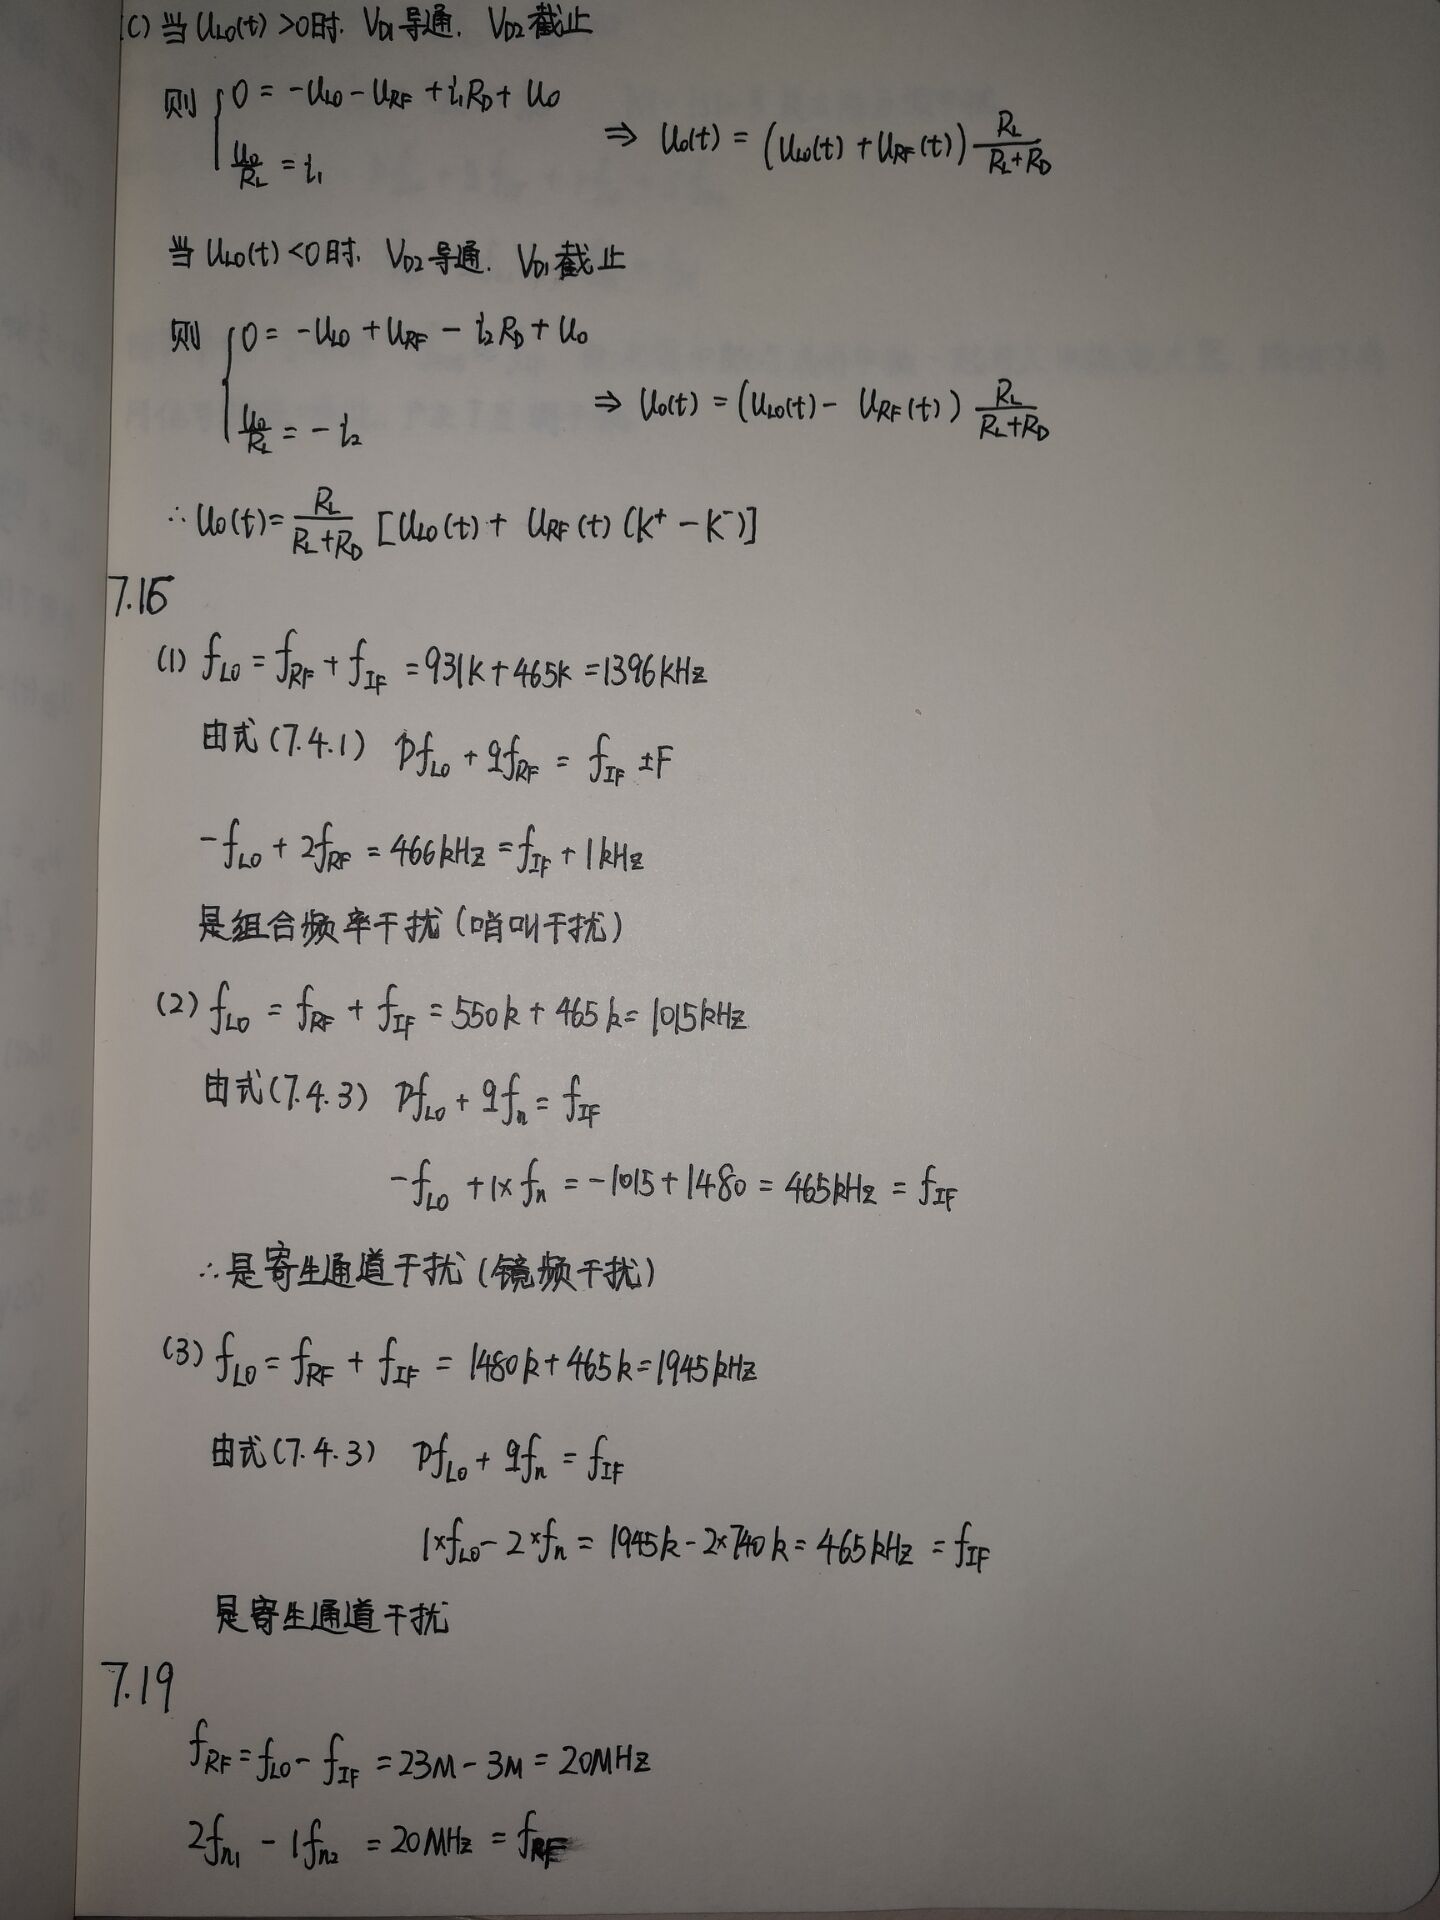 (C) 当 U_LO(t) >0时. V_D1导通. V_D2截止
则 { 0 = -U_LO - U_RF + i_1R_D + U_o
U_o/R_L = i_1 ⇒ U_o(t) = (U_LO(t) + U_RF(t)) R_L/(R_L+R_D)
当 U_LO(t) <0时. V_D2导通. V_D1截止
则 { 0 = -U_LO + U_RF - i_2R_D + U_o
U_o/R_L = -i_2 ⇒ U_o(t) = (U_LO(t) - U_RF(t)) R_L/(R_L+R_D)
∴ U_o(t) = R_L/(R_L+R_D) [U_LO(t) + U_RF(t) (K⁺ - K⁻)]
7.15
(1) f_LO = f_RF + f_IF = 931k + 465k = 1396kHz
由式(7.4.1) pf_LO + qf_RF = f_IF ±F
-f_LO + 2f_RF = 466kHz = f_IF + 1kHz
是组合频率干扰(哨叫干扰)
(2) f_LO = f_RF + f_IF = 550k + 465k = 1015kHz
由式(7.4.3) pf_LO + qf_n = f_IF
-f_LO + 1×f_n = -1015 + 1480 = 465kHz = f_IF
∴是寄生通道干扰(镜频干扰)
(3) f_LO = f_RF + f_IF = 1480k + 465k = 1945kHz
由式(7.4.3) pf_LO + qf_n = f_IF
1×f_LO - 2×f_n = 1945k - 2×740k = 465kHz = f_IF
是寄生通道干扰
7.19
f_RF = f_LO - f_IF = 23M - 3M = 20MHz
2f_n1 - 1f_n2 = 20MHz = f_RF